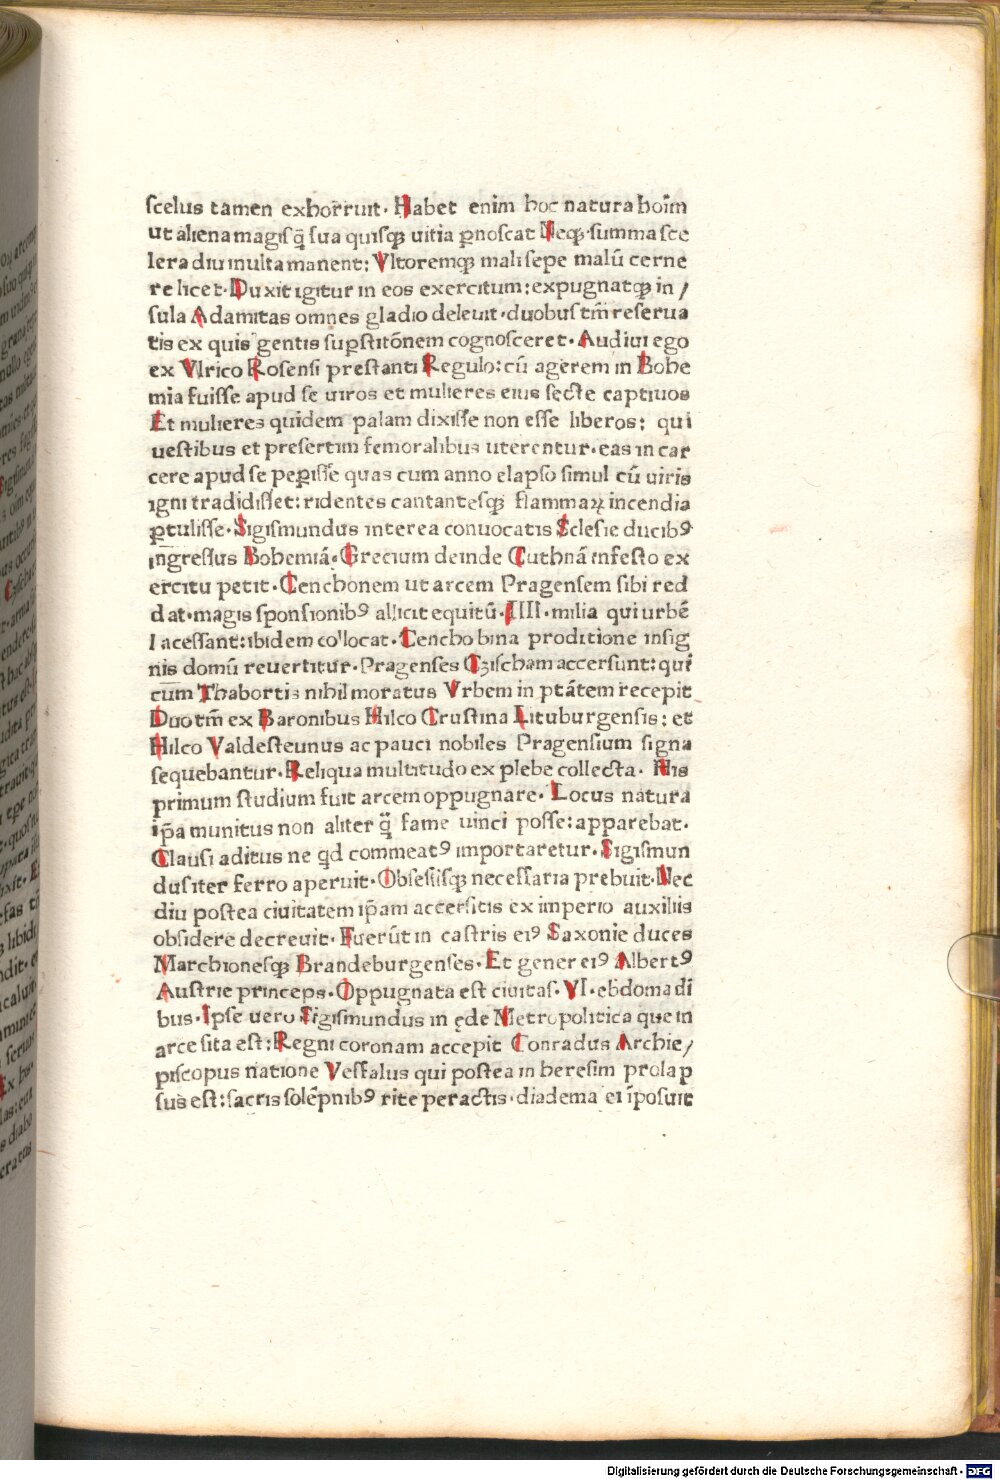 scelus tamen exhorruit· Habet enim hoc natura hoīm
ut aliena magisq̄ sua quisqꝫ uitia ꝑnoscat Neqꝫ summa sce
lera diu inulta manent: Vltoremqꝫ mali sepe malū cerne
re licet· Duxit igitur in eos exercitum: expugnatqꝫ in /
sula Adamitas omnes gladio deleuit· duobus tm̄ reserua
tis ex quis gentis suꝑstitōnem cognosceret· Audiui ego
ex Vlrico Rosensi prestanti Regulo: cū agerem in Bohe
mia fuisse apud se uiros et mulieres eius secte captiuos
Et mulieres quidem palam dixisse non esse liberos: qui
uestibus et presertim femoralibus uterentur· eas in car
cere apud se peꝑisse quas cum anno elapso simul cū uiris
igni tradidisset: ridentes cantantesqꝫ flammaꝝ incendia
ꝑtulisse· Sigismundus interea conuocatis Sclesie ducibꝰ
ingressus Bohemiā· Grecium deinde Cuthnā infesto ex
ercitu petit· Cenchonem ut arcem Pragensem sibi red
dat· magis sponsionibꝰ allicit equitū· IIII· milia qui urbē
lacessant: ibidem collocat· Cencho bina proditione insig
nis domū reuertitur· Pragenses Czischam accersunt: qui
cum Thabortis nihil moratus Vrbem in ptātem recepit
Duo tm̄ ex Baronibus Hilco Crustina Lituburgensis: et
Hilco Valdesteunus ac pauci nobiles Pragensium signa
sequebantur· Reliqua multitudo ex plebe collecta· His
primum studium fuit arcem oppugnare· Locus natura
ip̄a munitus non aliter q̄ fame uinci posse: apparebat·
Clausi aditus ne qd commeatꝰ importaretur· Sigismun
dus iter ferro aperuit· Obsessisqꝫ necessaria prebuit· Nec
diu postea ciuitatem ip̄am accersitis ex imperio auxiliis
obsidere decreuit· Fuerūt in castris eiꝰ Saxonie duces
Marchionesqꝫ Brandeburgenses· Et gener eiꝰ Albertꝰ
Austrie princeps· Oppugnata est ciuitas· VI· ebdomadi
bus· Ipse uero Sigismundus in ęde Metropolitica que in
arce sita est: Regni coronam accepit Conradus Archie/
piscopus natione Vesfalus qui postea in heresim prolap
sus est: sacris solēpnibꝰ rite peractis· diadema ei īposuit
Digitalisierung gefördert durch die Deutsche Forschungsgemeinschaft - DFG